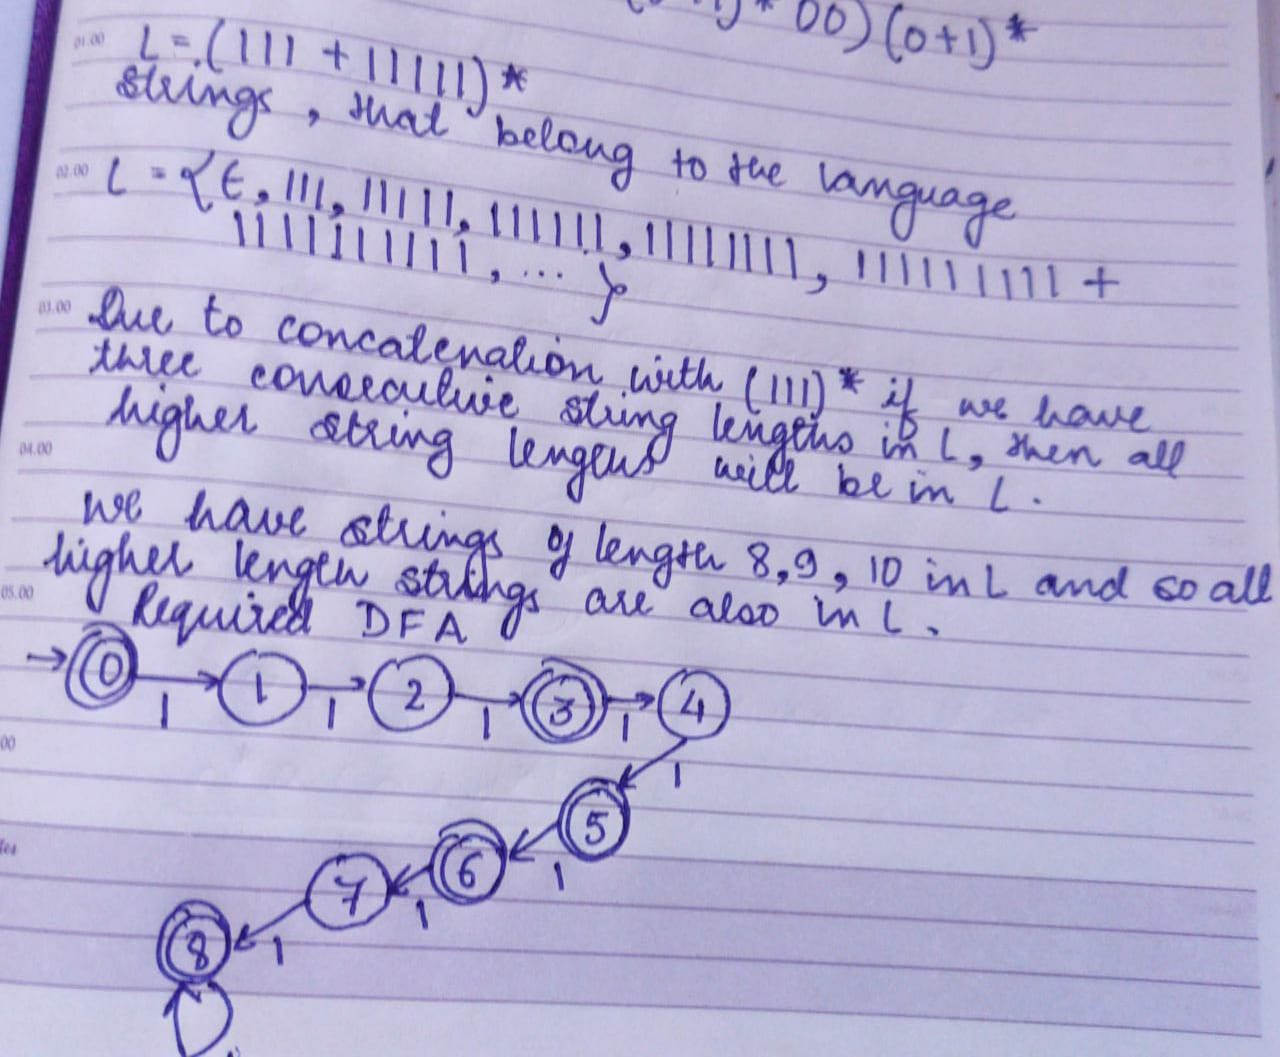 )* 00)(0+1)*
01.00 L = (111 + 11111)*
strings, that belong to the language
02.00 L = {ϵ, 111, 11111, 111111, 11111111, 111111111 +
1111111111, ... }
03.00 Due to concatenation with (111)* if we have
three consecutive string lengths in L, then all
higher string lengths will be in L.
04.00
We have strings of length 8,9,10 in L and so all
higher length strings are also in L.
05.00 Required DFA
0 1 1 1 2 1 3 1 4
1
00
5
1
6
1
7
1
8